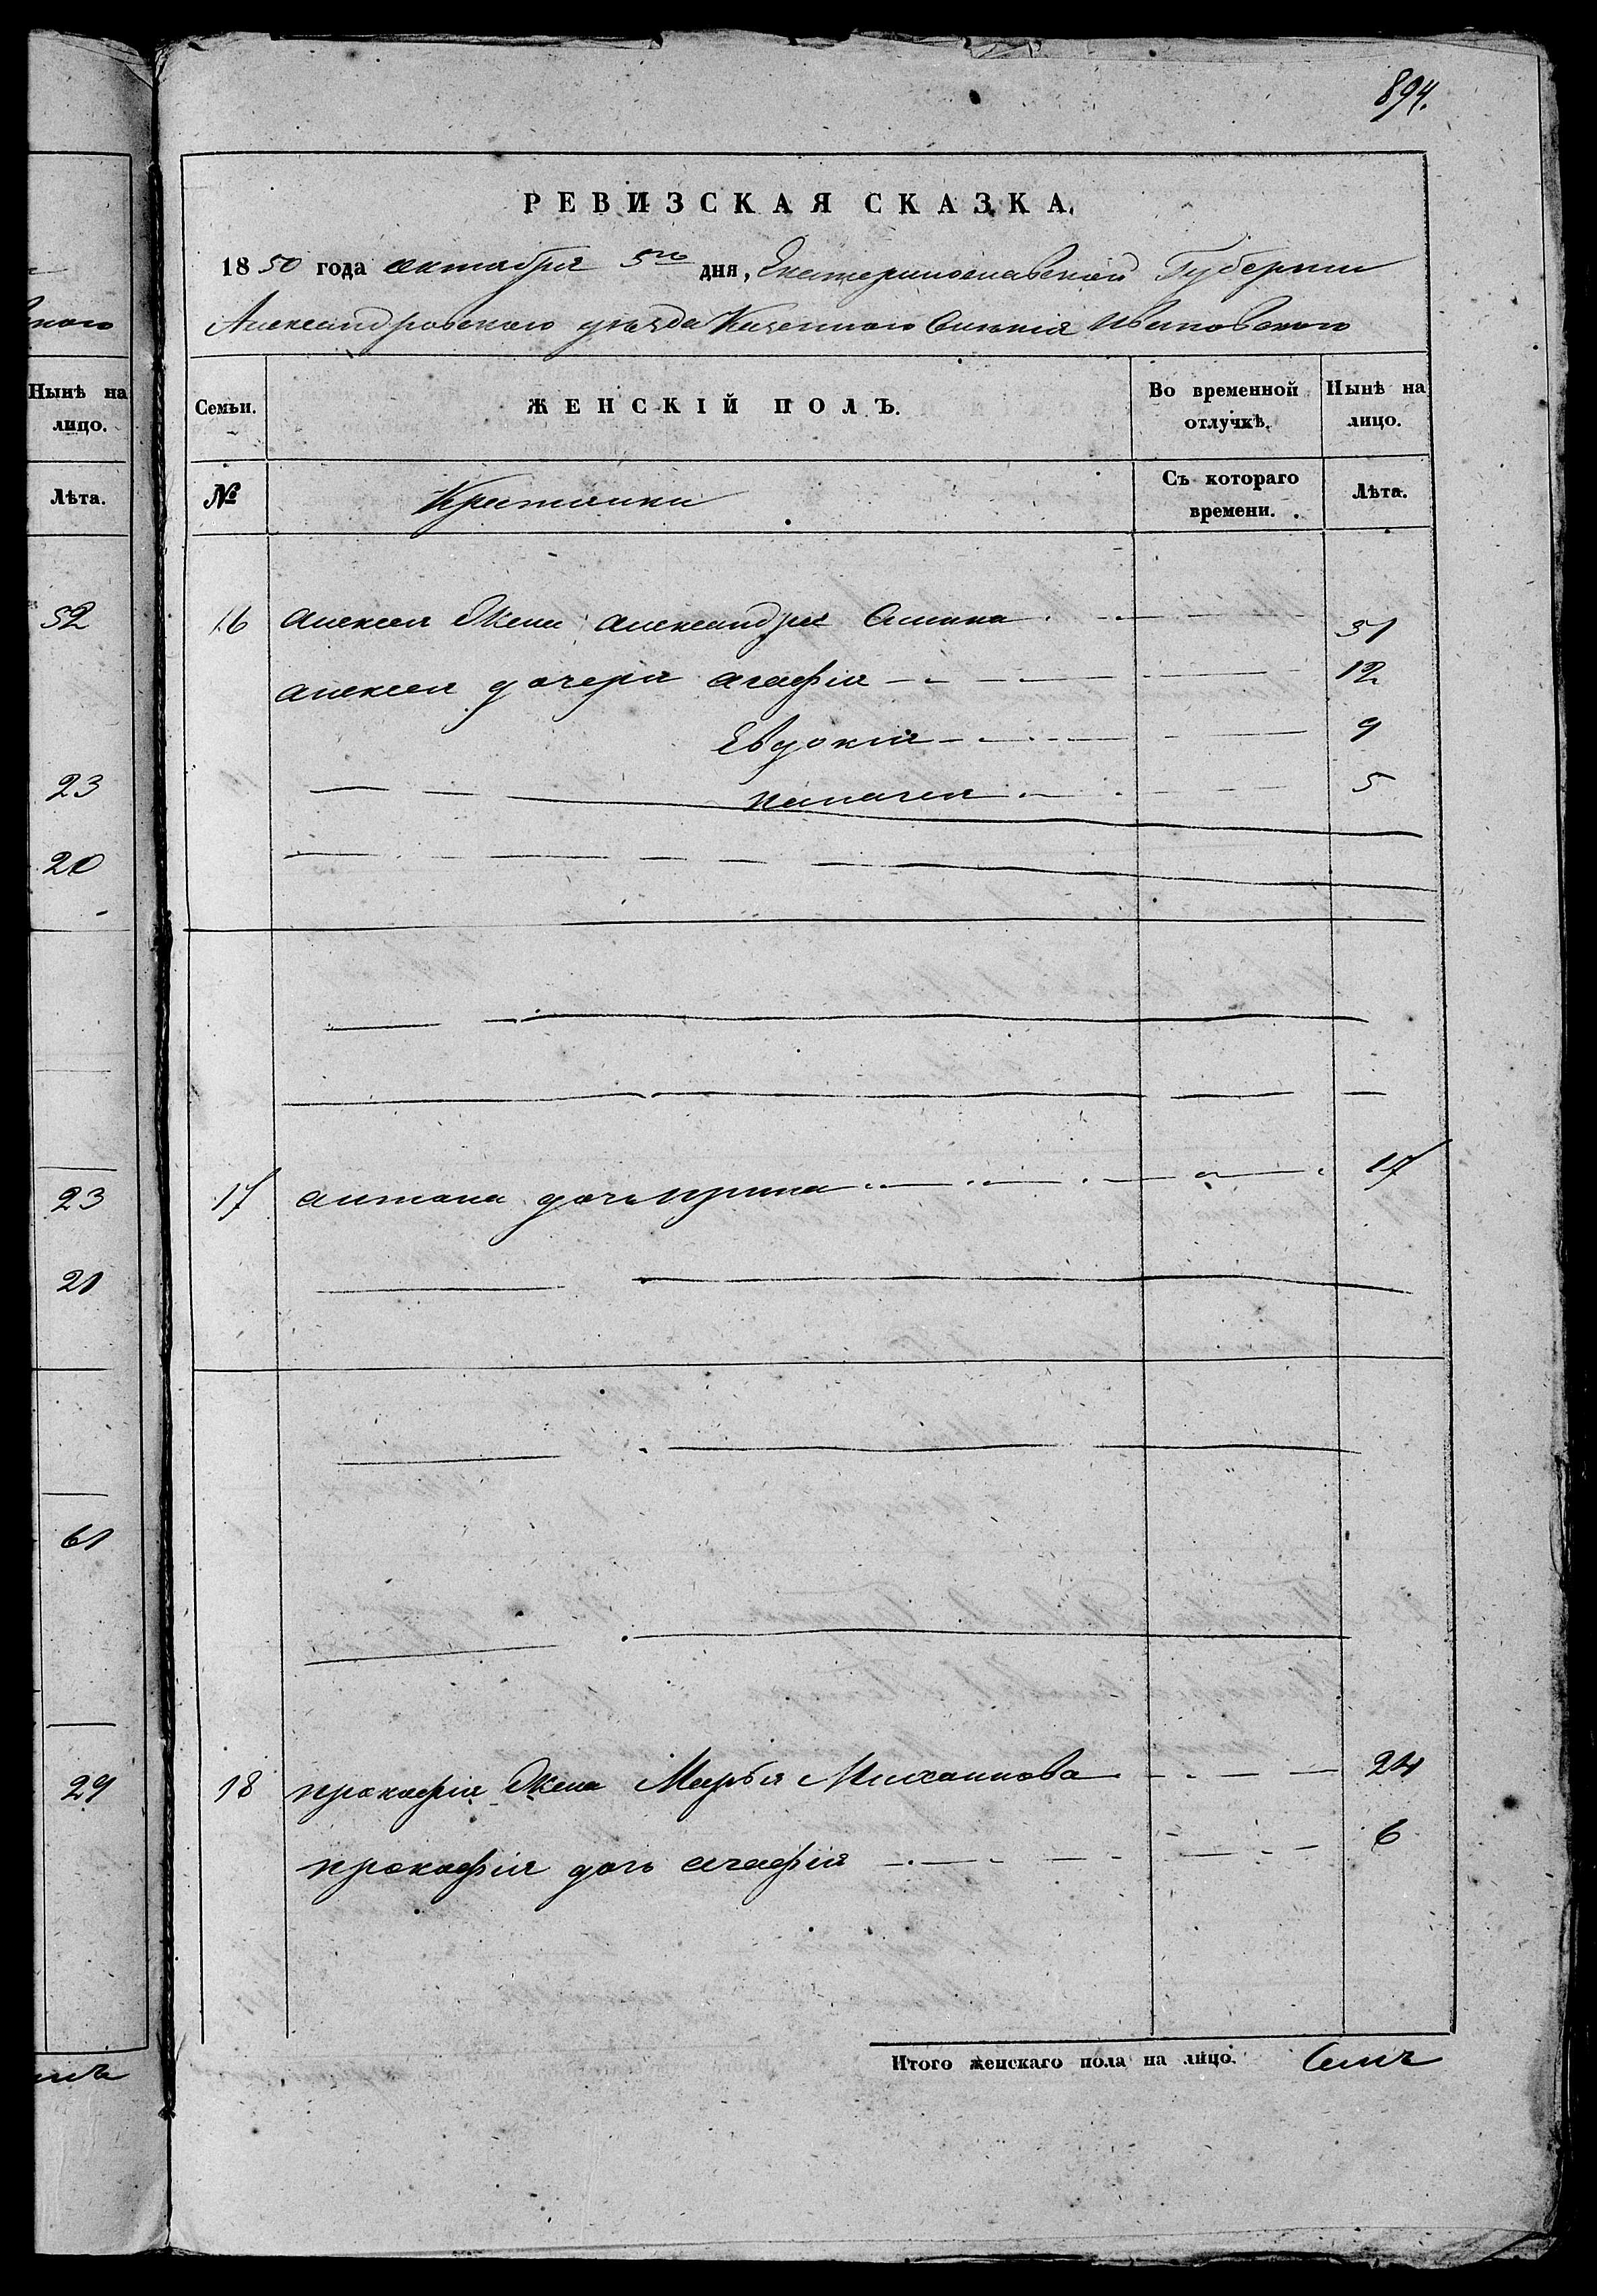 894.
РЕВИЗСКАЯ СКАЗКА.
1850 года октября 5го дня, Екатеринославской Губернии
Александровского уезда Казенного Селенія Ивановского
ного
Нынѣ на лицо.
Семьи.
ЖЕНСКІЙ ПОЛЪ.
Во временной отлучкѣ.
Нынѣ на лицо.
Лѣта.
№
Крестянки
Съ котораго времени.
Лѣта.
52
16 Алексея Жена Александра 31
Алексея дочери Агафія 12
Евдокія 9
Пелагея 5
23
20
23
17 Антона дочь Ирина 17
21
61
29
18 Прокофія Жена Марья Михаилова 24
Прокофія дочь Агафія 6
Итого женскаго пола на лицо. Семь